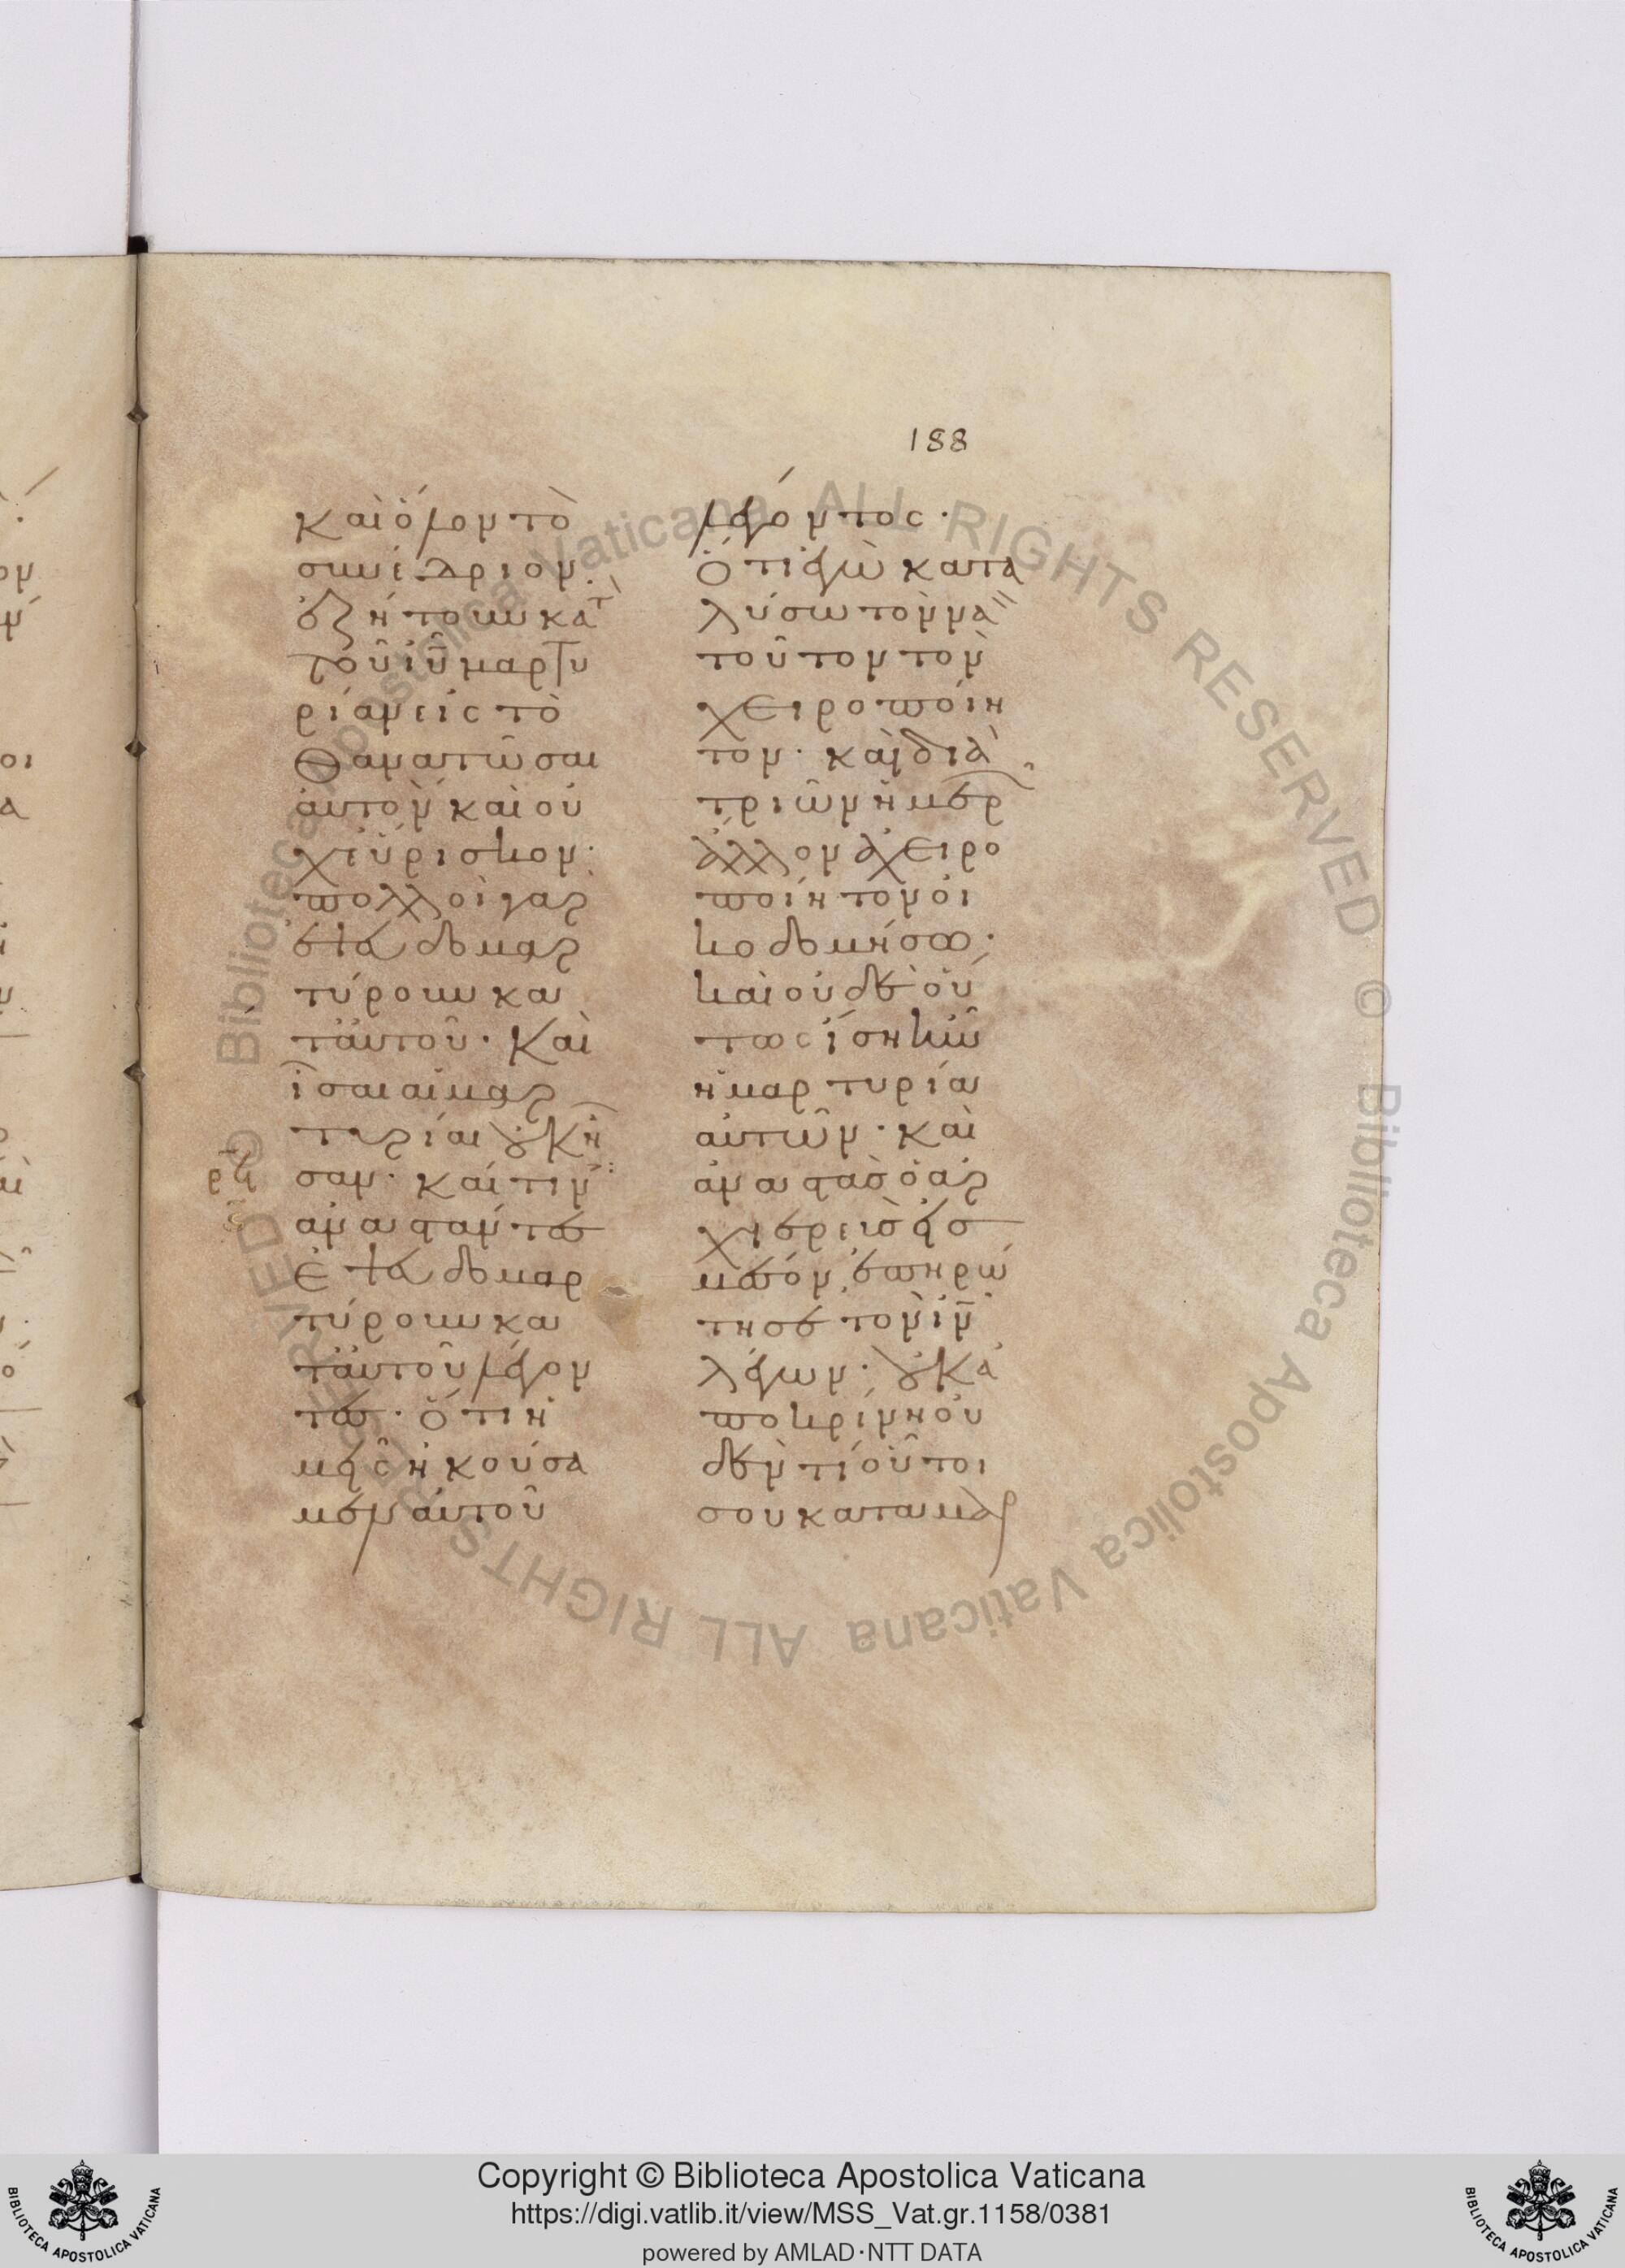 188
καὶ ὅλον τὸ
συνέδριον.
ἐζήτουν κατ
τοῦ ιυ μαρτυ
ρίαν εἰς τὸ
θανατῶσαι
αὐτὸν καὶ οὐ
χ εὕρισκον·
πολλοὶ γὰρ
ἐψευδομαρ
τύρουν κα
τ αὐτοῦ· καὶ
ἴσαι αἱ μαρ
τυρίαι οὐκ ἦ
σαν· καί τιν
ἀναστάντες
ἐψευδομαρ
τύρουν κα
τ αὐτοῦ λέγον
τες· ὅτι ἡ
μεῖς ἠκούσα
μεν αὐτοῦ
λέγοντος·
ὅτι ἐγὼ κατα
λύσω τὸν να
τοῦτον τὸν
χειροποίη
τον· καὶ διὰ
τριῶν ἡμερ
ἄλλον ἀχειρο
ποίητον οἰ
κοδομήσω·
καὶ οὐδὲ οὕ
τως ἴση ἦν
ἡ μαρτυρία
αὐτῶν· καὶ
ἀναστὰς ὁ ἀρ
χιερεὺς εἰς
μέσον, ἐπηρώ
τησε τὸν ιν
λέγων· οὐκ ἀ
ποκρίνη οὐ
δέν τί οὗτοί
σου καταμαρ
Copyright © Biblioteca Apostolica Vaticana
https://digi.vatlib.it/view/MSS_Vat.gr.1158/0381
powered by AMLAD·NTT DATA
BIBLIOTECA APOSTOLICA VATICANA
BIBLIOTECA APOSTOLICA VATICANA
© Biblioteca Apostolica Vaticana ALL RIGHTS RESERVED © Biblioteca Apostolica Vaticana ALL RIGHTS RESERVED